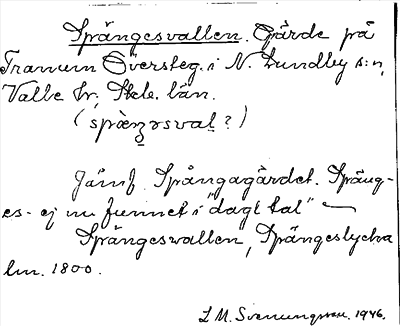 Spängesvallen. Gärde på
Tranum Översteg. i N. Lundby s:n,
Valle hr; Skbg. län.
(spæŋəsval?)
Jämf. Spångagärdet. Späng-
es- ej nu funnet i "dagl. tal"
Spängeswallen, Spängeslycka
lm. 1800.
L M. Svenungsson. 1946.